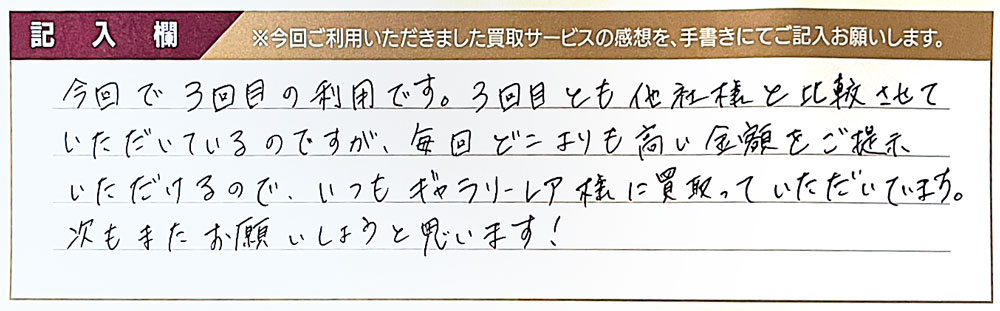 記入欄 ※今回ご利用いただきました買取サービスの感想を、手書きにてご記入お願いします。
今回で3回目の利用です。3回目とも他社様と比較させて
いただいているのですが、毎回どこよりも高い金額をご提示
いただけるので、いつもギャラリーレア様に買取っていただいています。
次もまたお願いしようと思います!